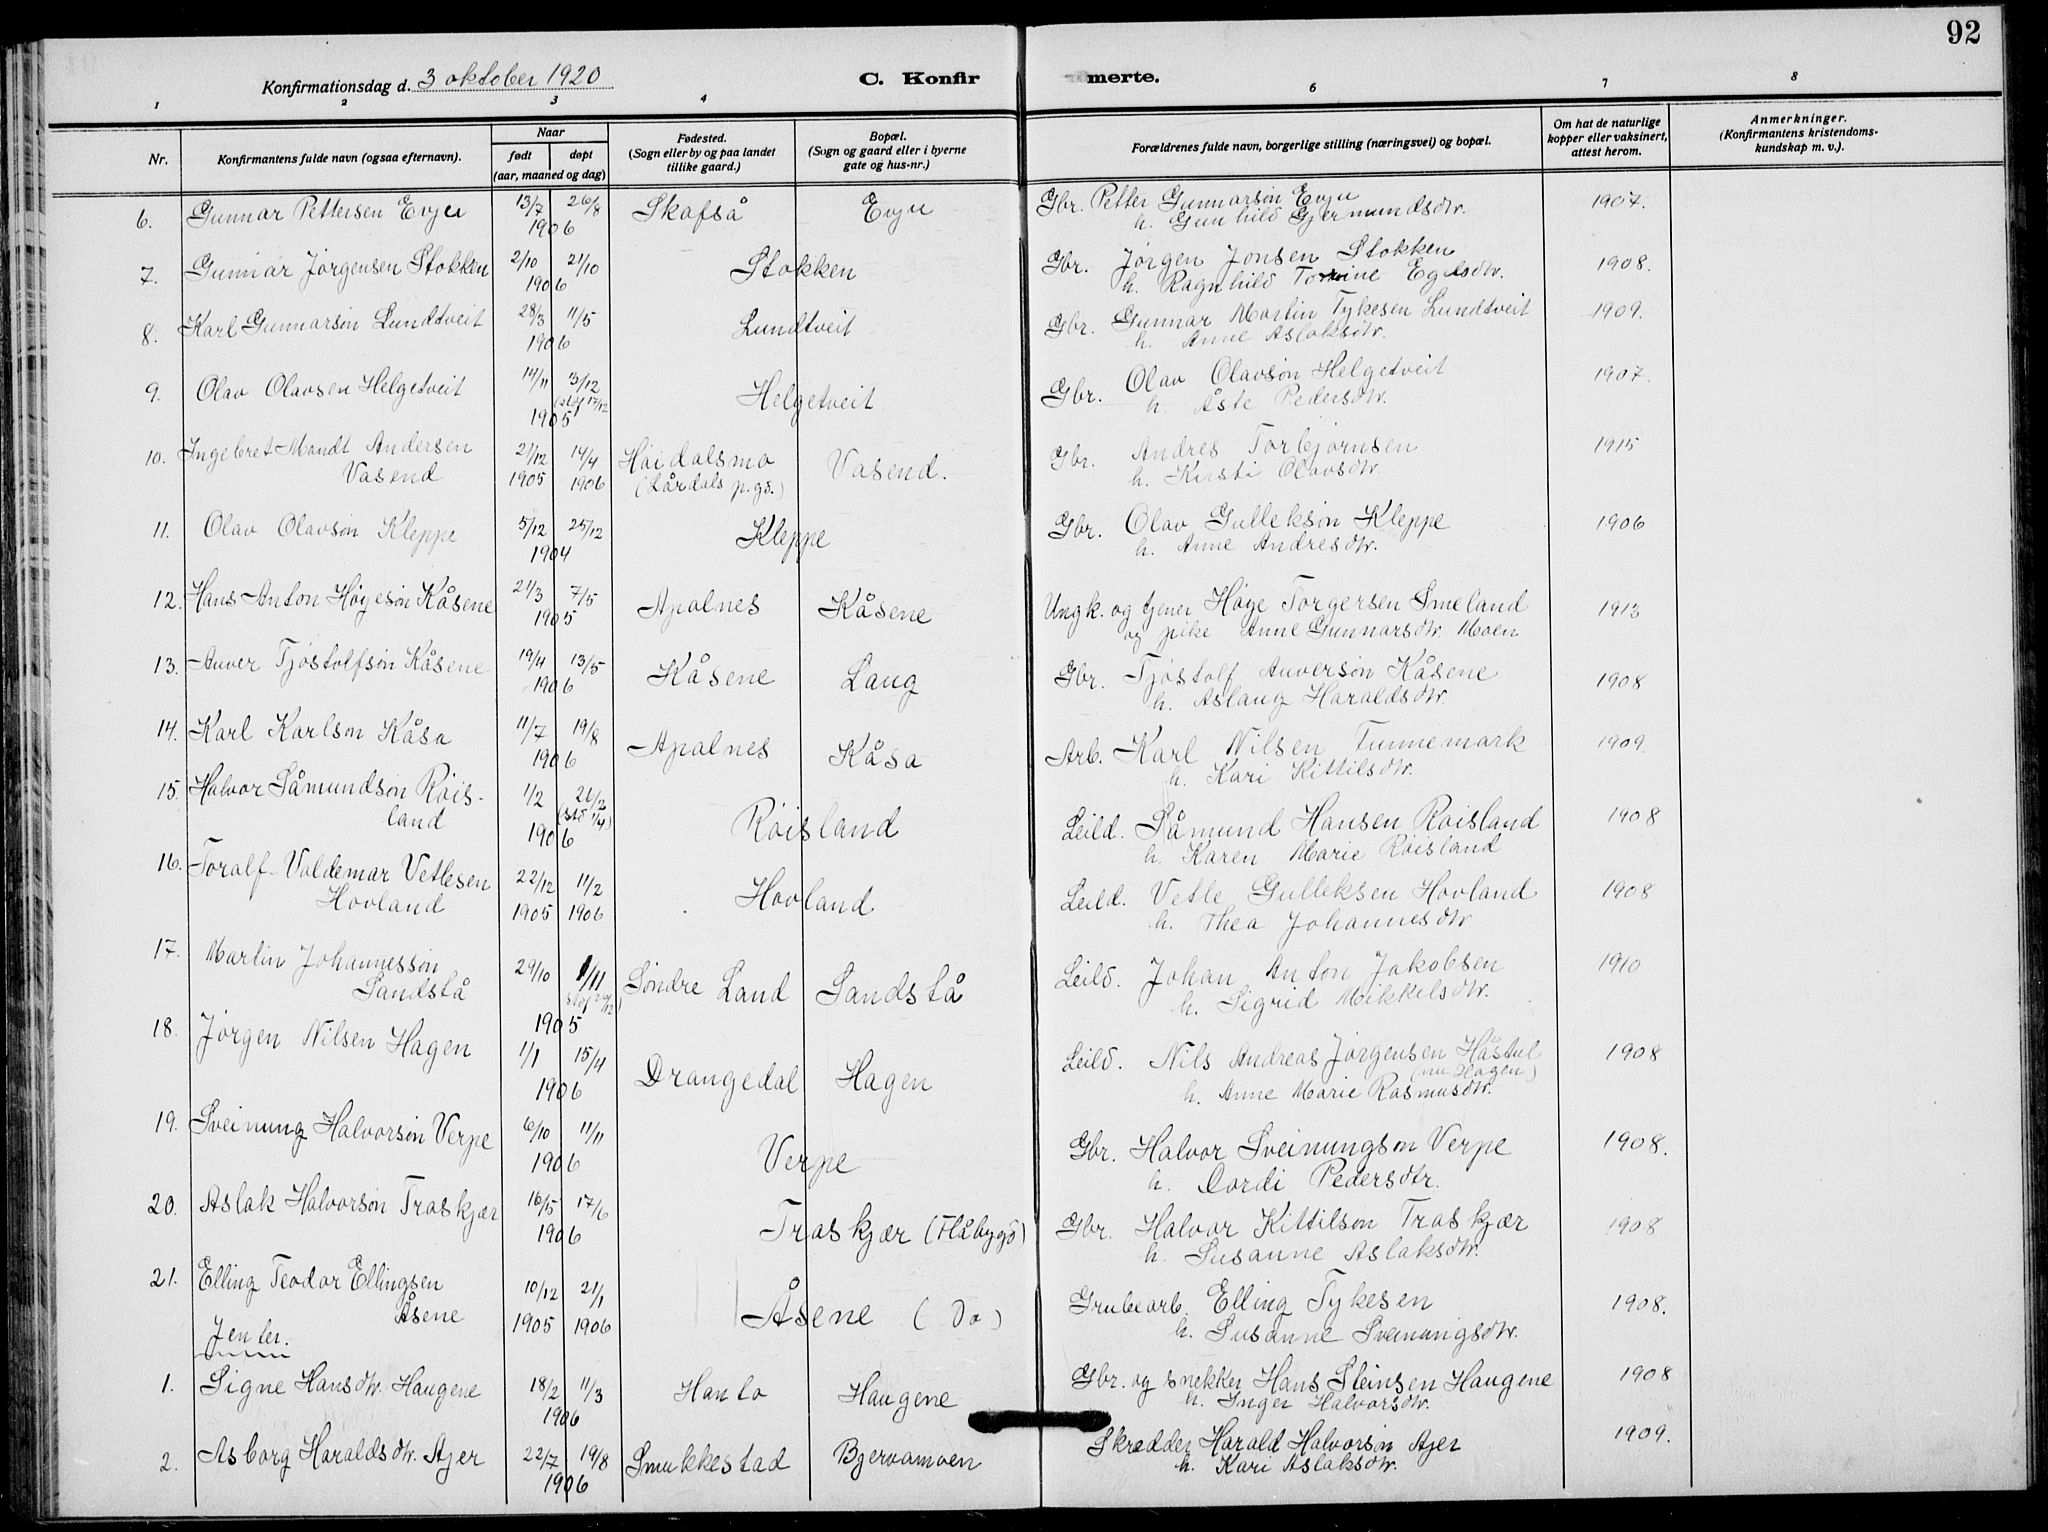 92
Konfirmationsdag d. 3 oktober 1920 C. Konfir merte.
1 2 3 4 6 7 8
Nr. Konfirmantens fulde navn (ogsaa efternavn). Naar født døpt (aar, maaned og dag) Fødested. (Sogn eller by og paa landet tillike gaard.) Bopæl. (Sogn og gaard eller i byerne gate og hus-nr.) Forældrenes fulde navn, borgerlige stilling (næringsvei) og bopæl. Om hat de naturlige kopper eller vaksinert, attest herom. Anmerkninger. (Konfirmantens kristendoms-kundskap m. v.).
6. Gunnar Pettersen Evju 13/7 26/8 Skafså Evju Gbr. Petter Gunnarson Evju 1907.
1906 h. Gunhild Gjermundsdtr.
7. Gunnar Jørgensen Stokken 2/10 21/10 Stokken Gbr. Jørgen Jonsen Stokken 1908.
1906 h. Ragnhild Tomine Egilsdtr.
8. Karl Gunnarson Lundtveit 28/3 11/5 Lundtveit Gbr. Gunnar Martin Tykesen Lundtveit 1909.
1906 h. Anne Aslaksdtr.
9. Olav Olavsen Helgetveit 14/11 3/12 Helgetveit Gbr. Olav Olavson Helgetveit 1907.
(stdf 17/12
1905 h. Åste Pedersdtr.
10. Ingebret Mandt Andersen 21/12 14/4 Høidalsmo Vasend. Gbr. Andres Torbjørnsen 1915
Vasend 1905 1906 (Lårdals p.gd.) h. Kirsti Olavsdtr.
11. Olav Olavson Kleppe 5/12 25/12 Kleppe Gbr. Olav Gulleksøn Kleppe 1906
1904 h. Anne Andresdtr.
12. Hans Anton Høyeson Kåsene 21/3 7/5 Apalnes Kåsene Ungk. og tjener Høye Torgersen Smeland 1913
1905 og pike Anne Gunnarsdtr. Moen
13. Anver Tjøstolfson Kåsene 19/4 13/5 Kåsene Laug Gbr. Tjøstolf Anverson Kåsene 1908
1906 h. Aslaug Haraldsdtr.
14. Karl Karlson Kåsa 11/7 19/8 Apalnes Kåsa Arb. Karl Nilsen Tunnemark 1909.
1906 h. Kari Kittilsdtr.
15. Halvor Såmundson Røis- 1/2 26/2 Røisland Leild. Såmund Hansen Røisland 1908
land (std 1/4)
1906 h. Karen Marie Røisland
16. Toralf Valdemar Vetlesen 22/12 11/2 Hovland Leild. Vetle Gulleksen Hovland 1908
Hovland 1905 1906 h. Thea Johannesdtr.
17. Martin Johannesson 29/10 1/11 Søndre Land Sandstå Leild. Johan Anton Jakobsen 1910
Sandstå 1905 h. Sigrid Mikkelsdtr.
18. Jørgen Nilsen Hagen 1/1 15/4 Drangedal Hagen Leild. Nils Andreas Jørgensen Håstul 1908
(nu Hagen)
1906 h. Anne Marie Rasmusdtr.
19. Sveinung Halvorson Verpe 6/10 11/11 Verpe Gbr. Halvor Sveinungson Verpe 1908.
1906 h. Dordi Pedersdtr.
20. Aslak Halvorson Traskjær 16/5 17/6 Traskjær (Flåbygd) Gbr. Halvor Kittilson Traskjær 1908
1906 h. Susanne Aslaksdtr.
21. Elling Teodor Ellingsen 10/12 21/1 Åsene (Do) Grubearb. Elling Tykesen 1908.
Åsene 1905 1906 h. Susanne Sveinungsdtr.
Jenter.
1. Signe Hansdtr. Haugene 18/2 11/3 Hanto Haugene Gbr. og snekker Hans Steinsen Haugene 1908
1906 h. Inger Halvorsdtr.
2. Asborg Haraldsdtr. Ajer 22/7 19/8 Smukkestad Bjervamoen Skredder Harald Halvorson Ajer 1909.
1906 h. Kari Aslaksdtr.